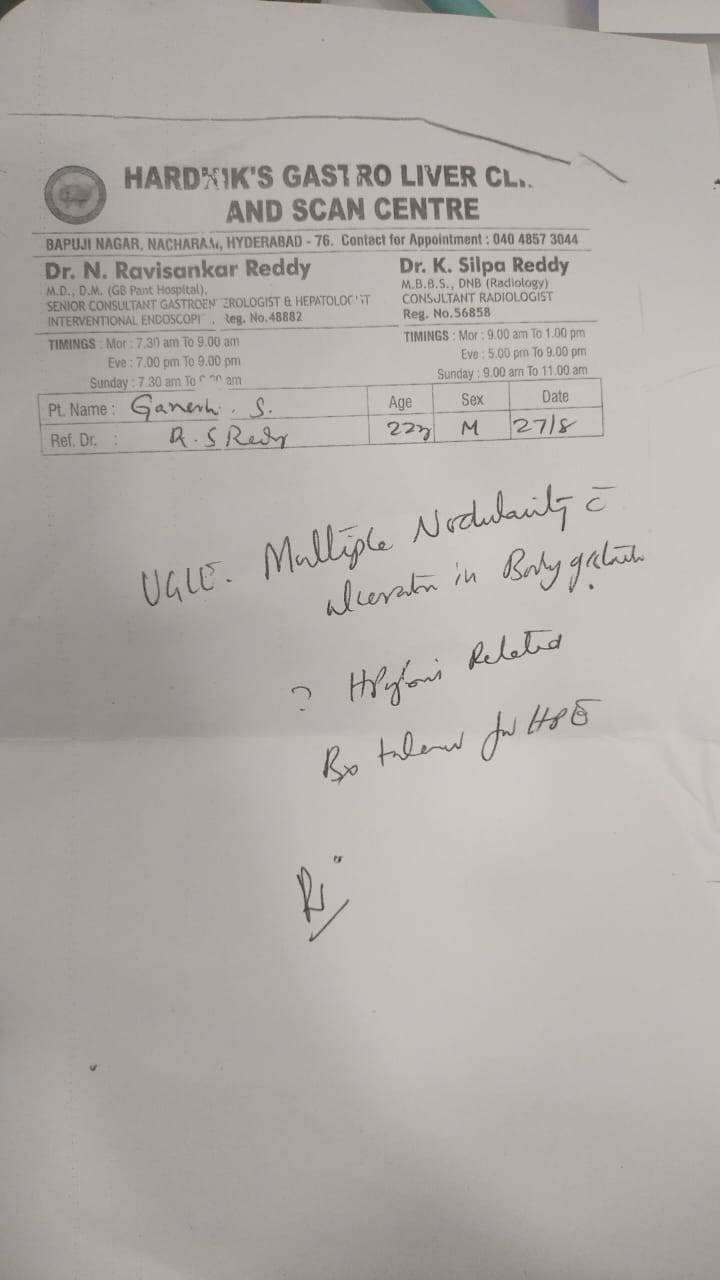 HARDHIK'S GASTRO LIVER CL..
AND SCAN CENTRE
BAPUJI NAGAR, NACHARAM, HYDERABAD - 76. Contact for Appointment : 040 4857 3044
Dr. N. Ravisankar Reddy
M.D., D.M. (GB Pant Hospital),
SENIOR CONSULTANT GASTROEN EROLOGIST & HEPATOLOGIST
INTERVENTIONAL ENDOSCOPI , Reg. No.48882
TIMINGS : Mor : 7.30 am To 9.00 am
Eve : 7.00 pm To 9.00 pm
Sunday : 7.30 am To am
Dr. K. Silpa Reddy
M.B.B.S., DNB (Radiology)
CONSULTANT RADIOLOGIST
Reg. No.56858
TIMINGS : Mor : 9.00 am To 1.00 pm
Eve : 5.00 pm To 9.00 pm
Sunday : 9.00 am To 11.00 am
Pt. Name : Ganesh . S. Age Sex Date
Ref. Dr. : S Reddy 22y M 27/8
UGIE. Multiple Nodularity c̄
ulceration in Body
? HPylori Related
Bx taken for HPE